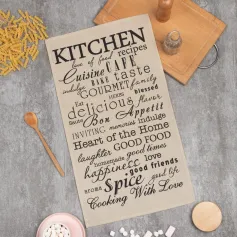 KITCHEN
love of food recipes
Cuisine CAFE
indulge BAKE taste
GOURMET family
Eat luxury Blessed
delicious flavor
dining Bon Appetit
INVITING memories indulge
Heart of the Home
laughter GOOD FOOD
homemade good times
happiness love
good friends
aroma spice good life
Cooking With Love